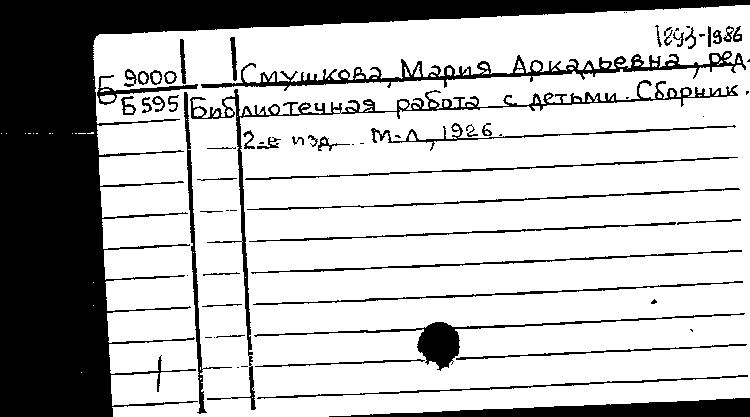 1893-1986
Б 9000 Смушкова, Мария Аркадьевна, ред.
Б595 Библиотечная работа с детьми. Сборник.
2-е изд. М-Л, 1926.